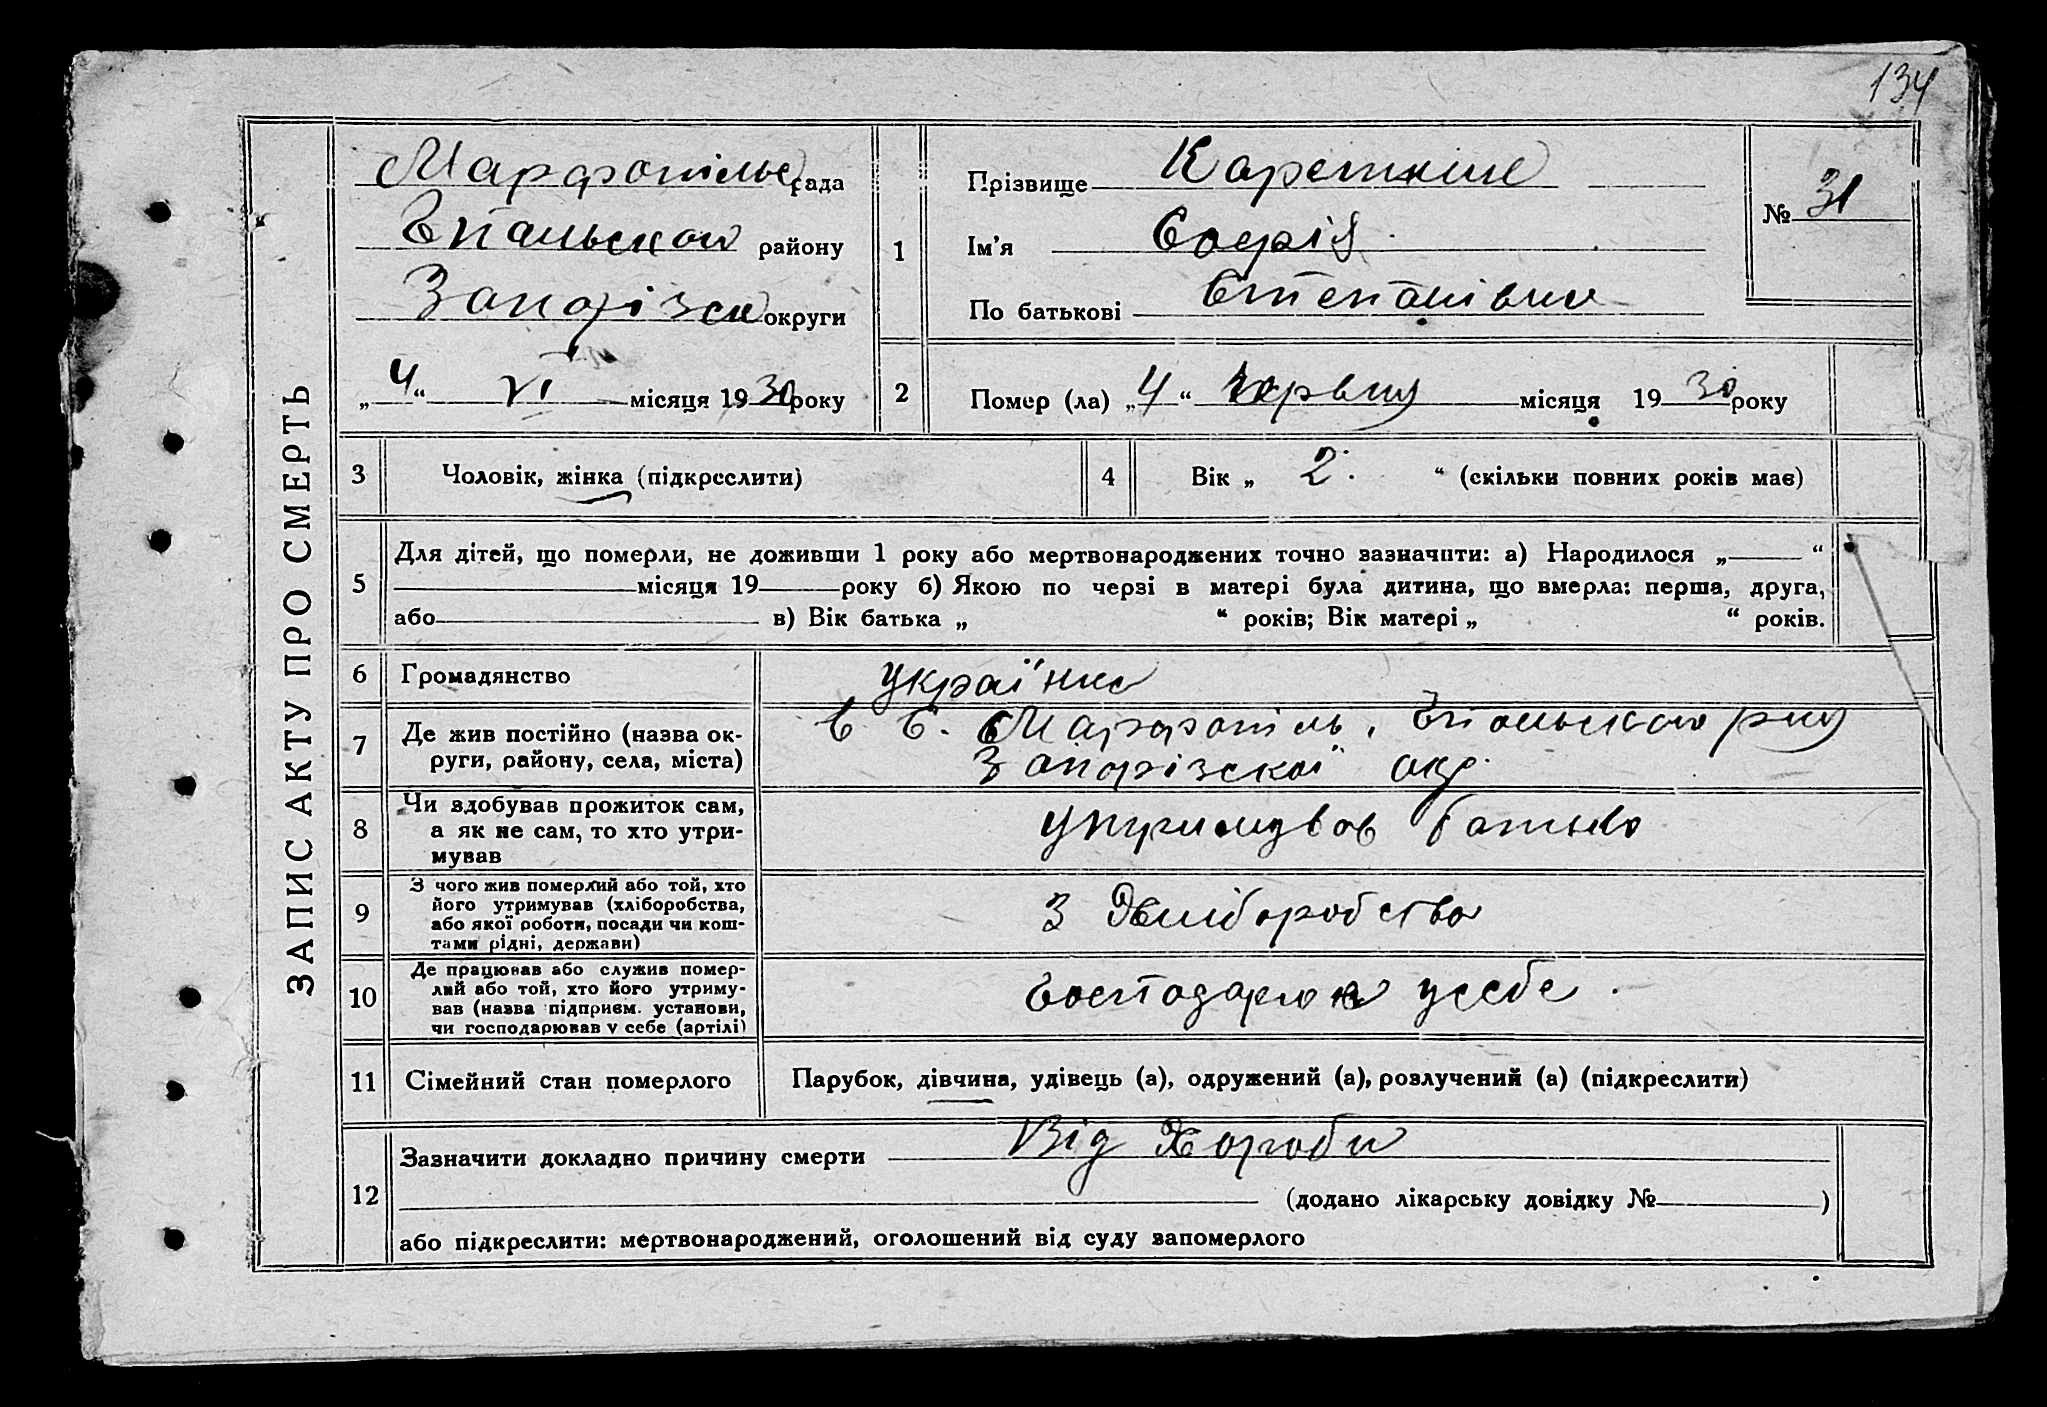 134
ЗАПИС АКТУ ПРО СМЕРТЬ
Марфопільс рада
району
Запорізск округи
„4“ VI місяця 1930 року
1
Прізвище
Ім'я Софія
По батькові Степанівна
№ 31
2
Помер (ла) „4“ червня місяця 1930 року
3
Чоловік, жінка (підкреслити)
4
Вік „ 2. “ (скільки повних років має)
5
Для дітей, що померли, не доживши 1 року або мертвонароджених точно зазначити: а) Народилося „ “
місяця 19 року б) Якою по черзі в матері була дитина, що вмерла: перша, друга,
або в) Вік батька „ “ років; Вік матері „ “ років.
6
Громадянство
українка
7
Де жив постійно (назва ок-
руги, району, села, міста)
С. Марфопіль, р-ну
Запорізскої окр.
8
Чи здобував прожиток сам,
а як не сам, то хто утри-
мував
батько
9
З чого жив померлий або той, хто
його утримував (хліборобства,
або якої роботи, посади чи кош-
тами рідні, держави)
З Хліборобства
10
Де працював або служив помер-
лий або той, хто його утриму-
вав (назва підприєм. установи,
чи господарював у себе (артілі)
Господарює усебе.
11
Сімейний стан померлого
Парубок, дівчина, удівець (а), одружений (а), розлучений (а) (підкреслити)
12
Зазначити докладно причину смерти Від Хороби
(додано лікарську довідку № )
або підкреслити: мертвонароджений, оголошений від суду запомерлого